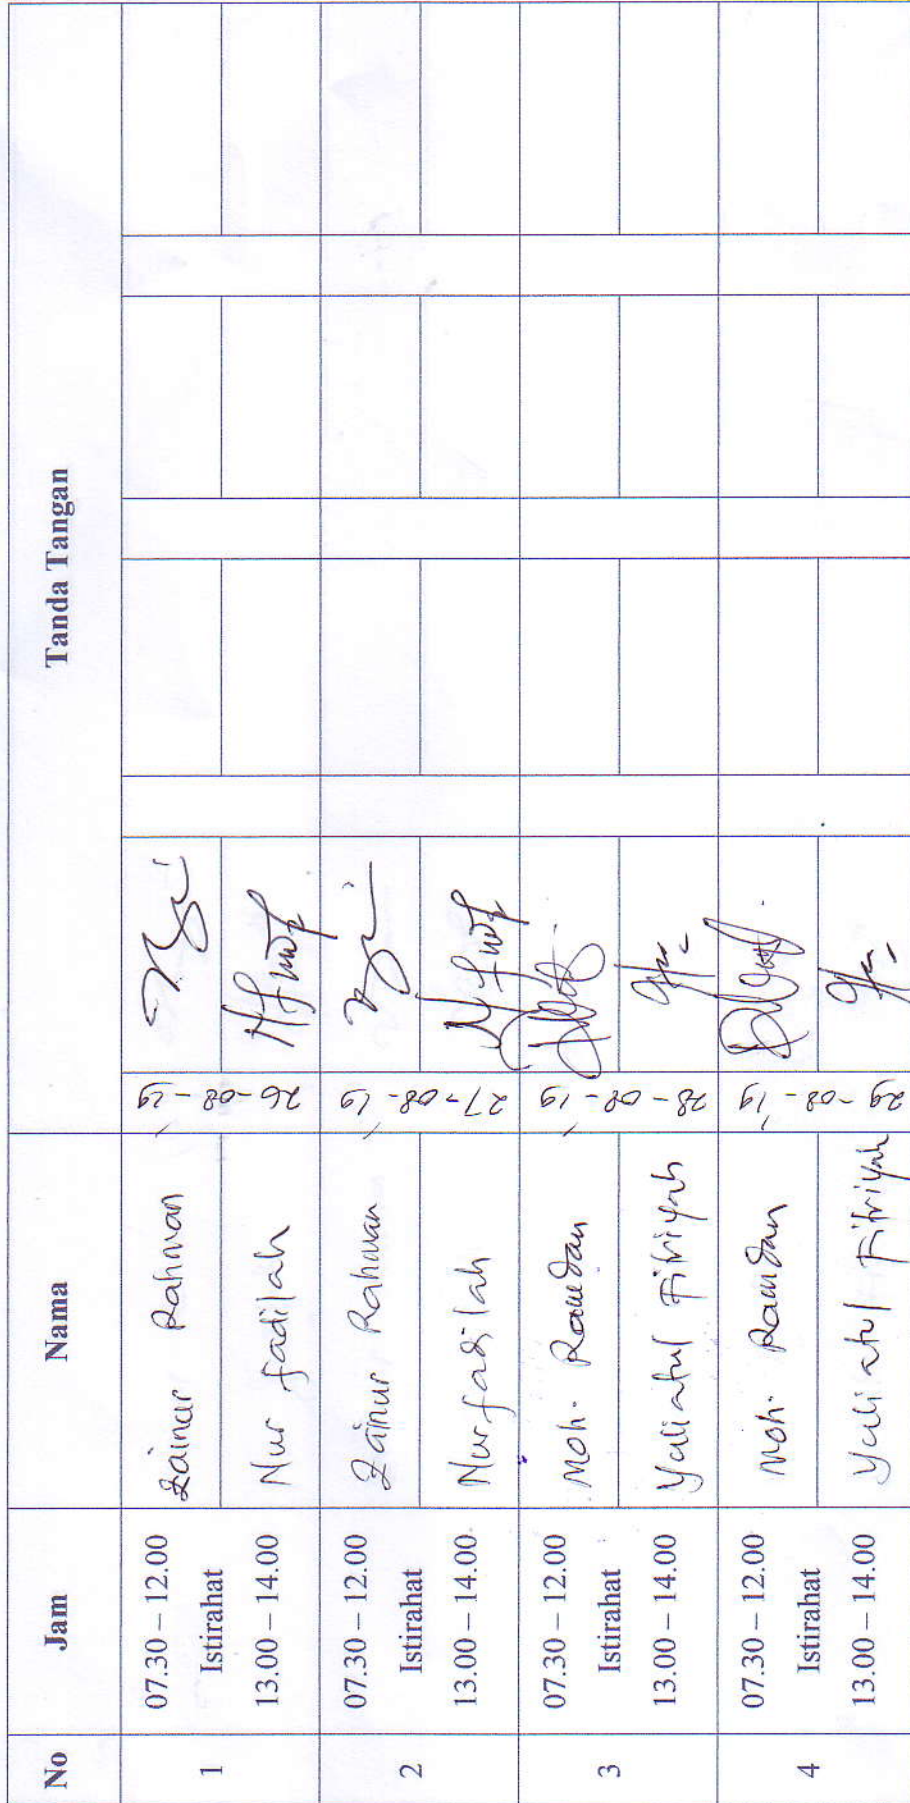 No Jam Nama Tanda Tangan
1
07.30 – 12.00
Istirahat
13.00 – 14.00
Zainur Rahman
Nur fadilah
26-08-19
2
07.30 – 12.00
Istirahat
13.00 – 14.00
Zainur Rahman
Nur fadilah
27-08-19
3
07.30 – 12.00
Istirahat
13.00 – 14.00
Moh. Ramdan
Yuliatul Fitriyah
28-08-19
4
07.30 – 12.00
Istirahat
13.00 – 14.00
Moh. Ramdan
Yuliatul Fitriyah
29-08-19